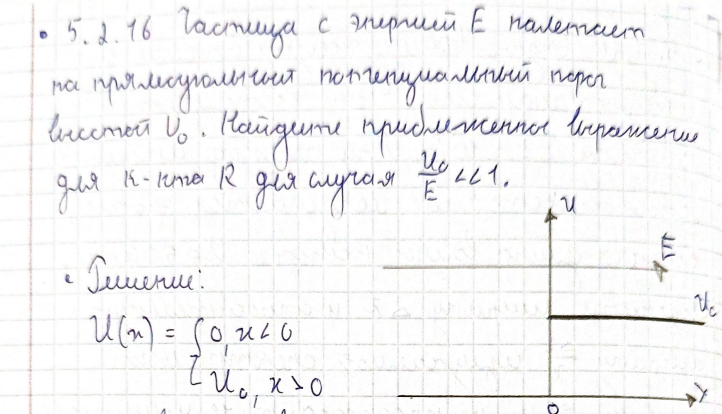 • 5.2.16 Частица с энергией E налетает
на прямоугольный потенциальный порог
высотой U₀. Найдите приближенное выражение
для к-нта R для случая U₀/E << 1.
• Решение:
U(x) = { 0, x < 0
U₀, x > 0
U
E
U₀
X
0